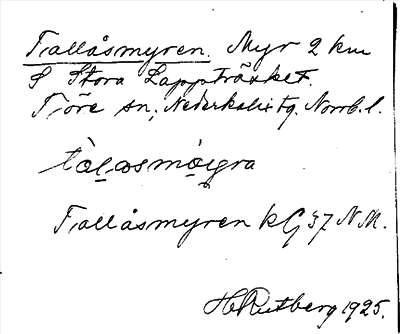 Tallåsmyren. Myr 2 km
S Stora Lappträsket.
Töre sn, Nederkalix tg. Norrb. l.
Tallåsmyren kG 37 N M.
H Rutberg 1925.